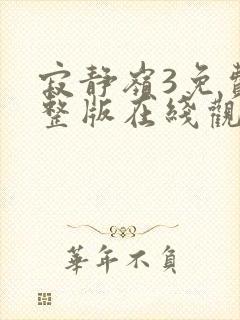 寂静嶺3免費
整版在綫觀
華年不負